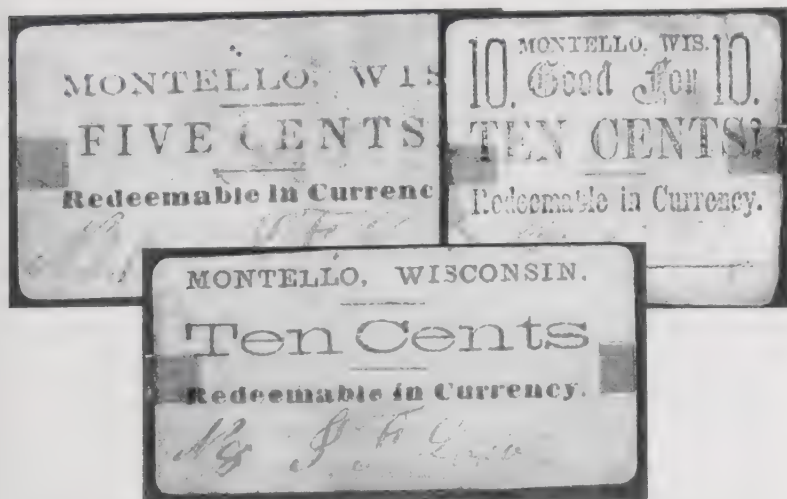 MONTELLO, WIS
FIVE CENTS
Redeemable in Currenc
10. MONTELLO, WIS. 10.
Good For
TEN CENTS!
Redeemable in Currency.
MONTELLO, WISCONSIN.
Ten Cents
Redeemable in Currency.